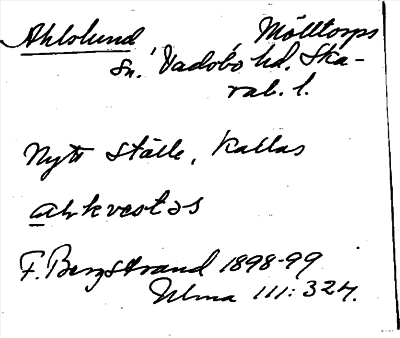 Ahlslund, Mölltorps
Sn. Vadsbo hd. Ska-
rab. l.
Nytt ställe, kallas
ahkvestəs
F. Bergstrand 1898-99
Ulma 111:324.